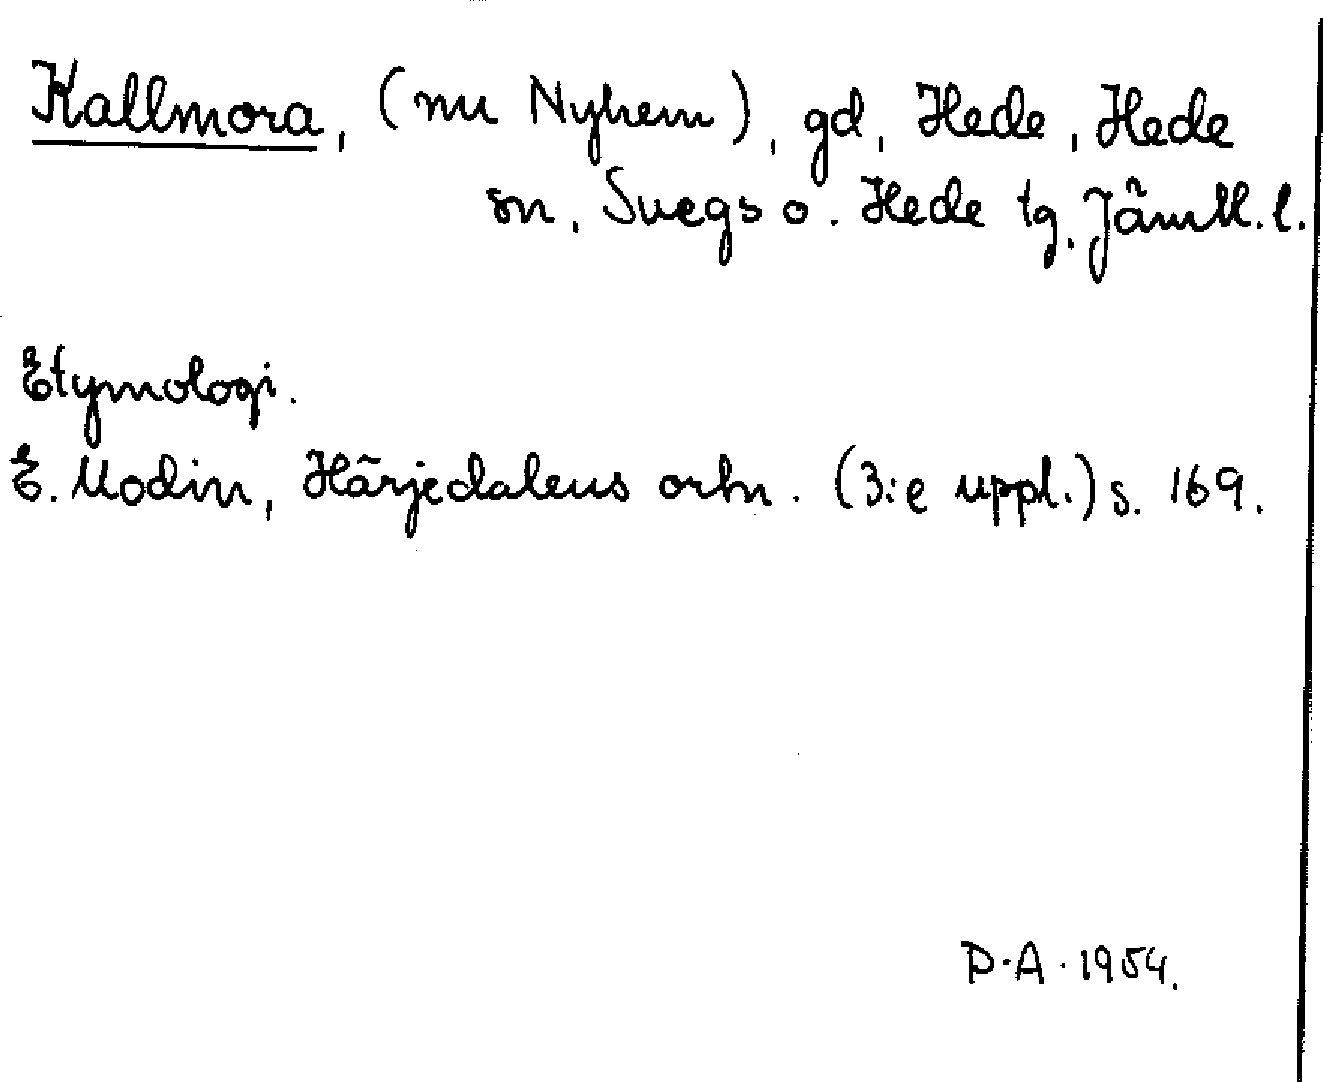 Kallmora, (nu Nyhem), gd, Hede, Hede
sn, Svegs o. Hede tg, Jämtl. l.
Etymologi.
E. Modin, Härjedalens ortn. (3:e uppl.) s. 169.
D.A. 1954.